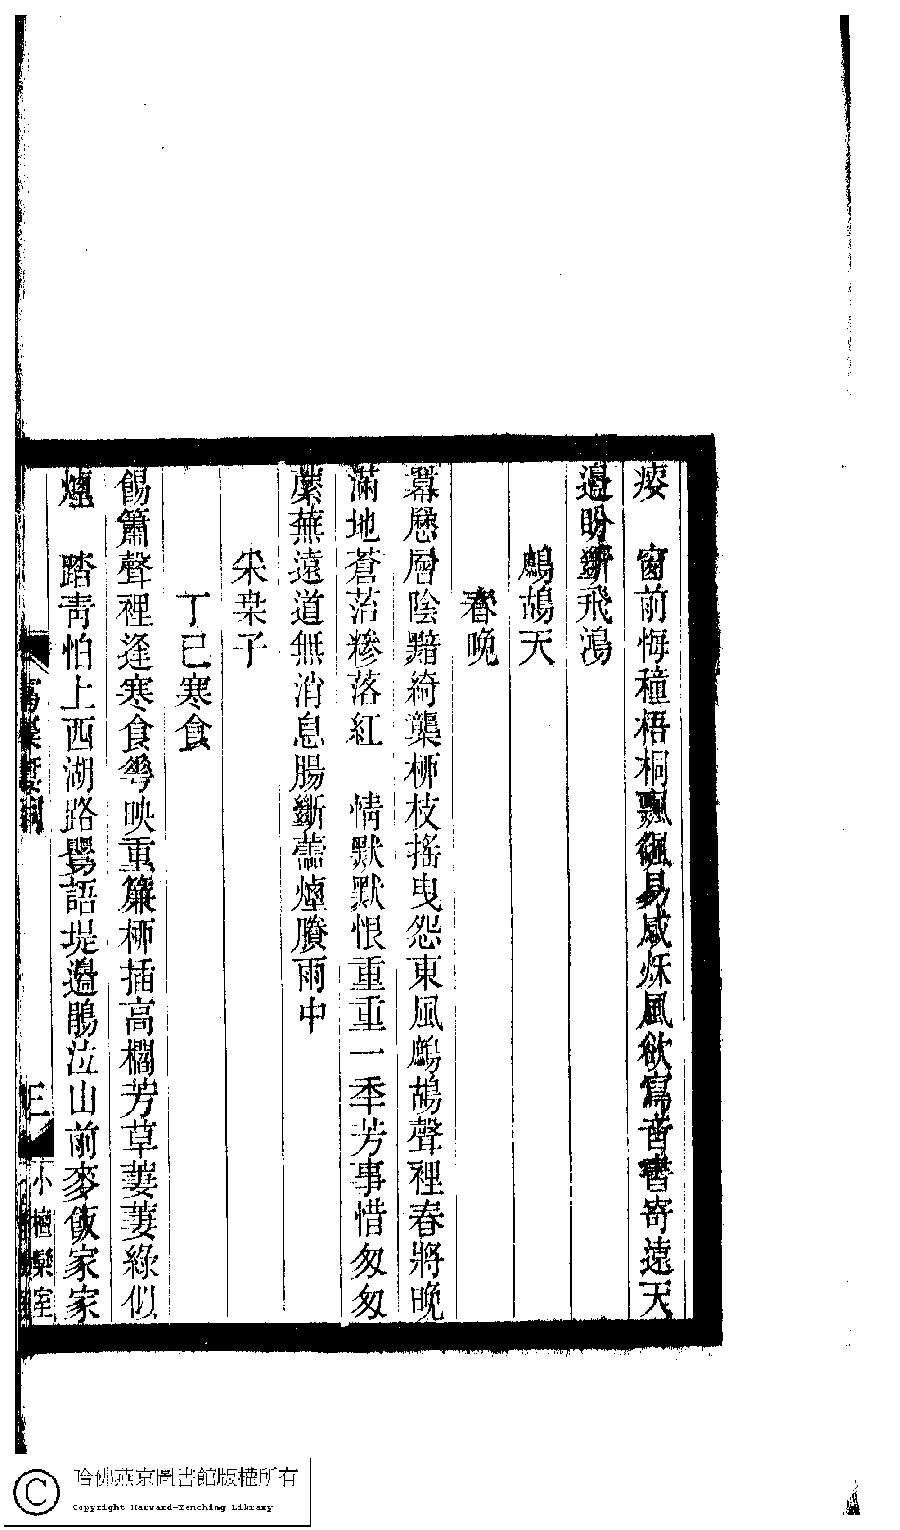 痿　窗前悔種梧桐飄颻易感秌風欲寫音書寄遠天
邊盼斷飛鴻
鷓鴣天
春晚
羃㦄層陰黯綺櫳柳枝搖曳怨東風鷓鴣聲裡春將晚
滿地蒼苔糝落紅　情默默恨重重一秊芳事惜匆匆
蘪蕪遠道無消息腸斷蘦煙賸雨中
采桑子
丁巳寒食
餳簫聲裡逢寒食㠭映重簾柳插高欄芳草萋萋綠似
煙　踏青怕上西湖路鶯語堤邊鵑泣山前麥飯家家
三
小檀欒室
哈佛燕京圖書館版權所有
Copyright Harvard-Yenching Library